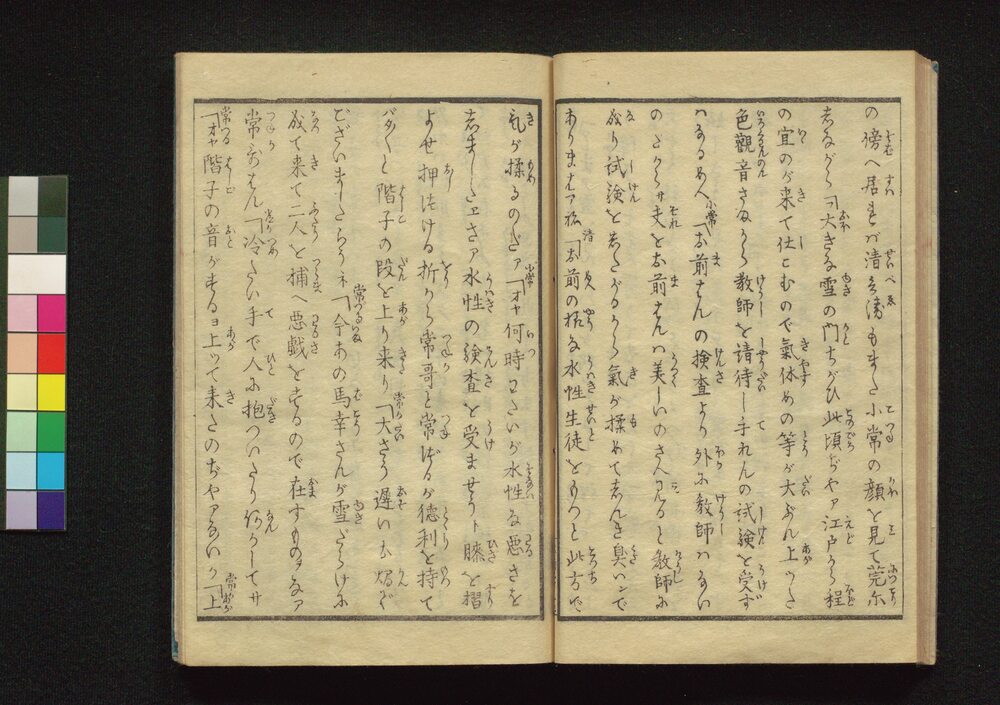 の傍へ居れバ清兵衛もまた小常の顔を見て莞尓
しながら「大きな雪の門ちがひ此頃ぢやア江戸から程
の宜のが来て仕こむので氣休めの等が大ぶん上つた
色觀音さまから教師を請待して手れんの試験を受ず
ハなるめへ 小常「お前さんの検査より外に教師ハない
のだからサ夫をお前さんハ美しいのさんざんると教師に
成り試験をしたがるから氣が揉めてしんき臭いンで
ありまさアね 清「お前の様な水性生徒をもつと此方で
氣が揉るのだア 小常「オヤ何時わたいが水性な悪さを
しましたヱさア水性の検査を受ませうト膝を摺
よせ押つける折から常哥と常ばるが徳利を持て
バタ〳〵と階子の段を上り来り 常哥「大さう遅いお燗で
ございましたらうネ 常ばる「今あの馬幸さんが雪だらけに
成て来て二人を捕へ悪戯をするので在すものヲなア
常哥さん「冷たい手で人に抱ついたり何かしてサ
常ばる「オヤ階子の音がするヨ上ツて来たのぢやアないか 常哥「上